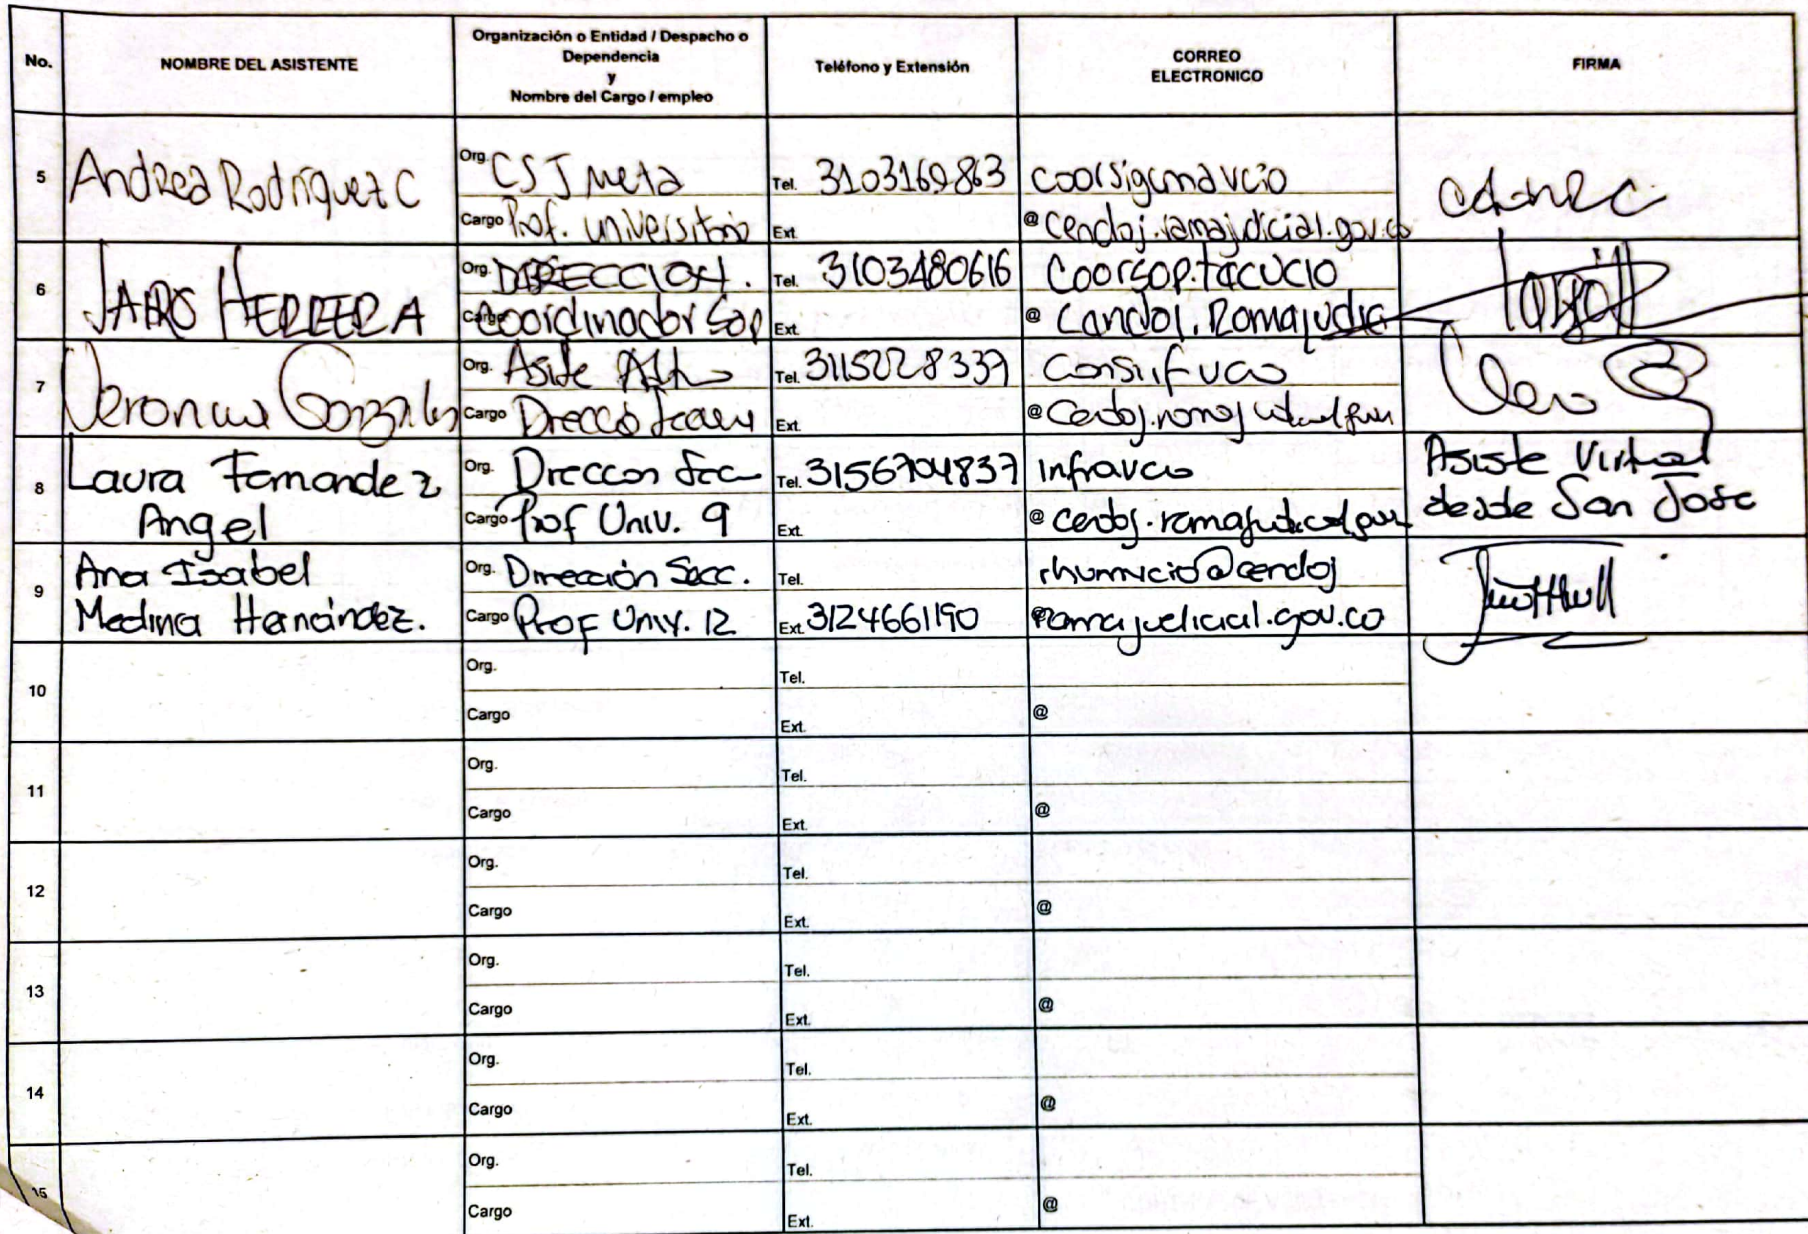 No.
NOMBRE DEL ASISTENTE
Organización o Entidad / Despacho o
Dependencia
y
Nombre del Cargo / empleo
Teléfono y Extensión
CORREO
ELECTRONICO
FIRMA
5
Andrea Rodríguez C
Org. CSJ Meta
Cargo Prof. universitario
Tel. 3103169863
Ext.
coorsigcmavcio
@ cendoj.ramajudicial.gov.co
6
JAIRO HERRERA
Org. DIRECCION.
Cargo Coordinador Sop
Tel. 3103480616
Ext.
Coorsop.tacucio
@ Cendoj.Ramajudic
7
Veronica Gonzales
Org. Asiste
Cargo
Tel. 3115228337
Ext.
@
8
Laura Fernandez
Angel
Org. Direccion Secc
Cargo Prof Univ. 9
Tel. 3156704837
Ext.
Infravcio
@ cendoj.ramajudicial.gov
Asiste Virtual
desde San Jose
9
Ana Isabel
Medina Hernández.
Org. Dirección Secc.
Cargo Prof Univ. 12
Tel.
Ext. 3124661190
rhumvcio@cendoj
@ramajudicial.gov.co
10
Org.
Cargo
Tel.
Ext.
@
11
Org.
Cargo
Tel.
Ext.
@
12
Org.
Cargo
Tel.
Ext.
@
13
Org.
Cargo
Tel.
Ext.
@
14
Org.
Cargo
Tel.
Ext.
@
15
Org.
Cargo
Tel.
Ext.
@